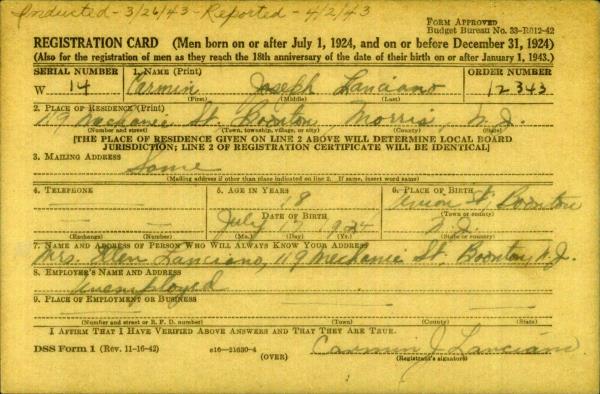 Inducted - 3/26/43 - Reported - 4/2/43
FORM APPROVED
Budget Bureau No. 33-R012-42
REGISTRATION CARD (Men born on or after July 1, 1924, and on or before December 31, 1924)
(Also for the registration of men as they reach the 18th anniversary of the date of their birth on or after January 1, 1943.)
SERIAL NUMBER 1. NAME (Print) ORDER NUMBER
W 14 Carmin Joseph Lanciano 12343
(First) (Middle) (Last)
2. PLACE OF RESIDENCE (Print)
119 Mechanic St. Boonton Morris, N.J.
(Number and street) (Town, township, village, or city) (County) (State)
[THE PLACE OF RESIDENCE GIVEN ON LINE 2 ABOVE WILL DETERMINE LOCAL BOARD
JURISDICTION; LINE 2 OF REGISTRATION CERTIFICATE WILL BE IDENTICAL]
3. MAILING ADDRESS
Same
(Mailing address if other than place indicated on line 2. If same, insert word same)
4. TELEPHONE 5. AGE IN YEARS 6. PLACE OF BIRTH
18 Union St. Boonton
DATE OF BIRTH (Town or county)
July 1924 N.J.
(Exchange) (Number) (Mo.) (Day) (Yr.) (State or country)
7. NAME AND ADDRESS OF PERSON WHO WILL ALWAYS KNOW YOUR ADDRESS
Mrs. Ellen Lanciano, 119 Mechanic St. Boonton, N.J.
8. EMPLOYER'S NAME AND ADDRESS
Unemployed
9. PLACE OF EMPLOYMENT OR BUSINESS
(Number and street or R. F. D. number) (Town) (County) (State)
I AFFIRM THAT I HAVE VERIFIED ABOVE ANSWERS AND THAT THEY ARE TRUE.
DSS Form 1 (Rev. 11-16-42) c16-21630-4 Carmin J Lanciano
(OVER) (Registrant's signature)